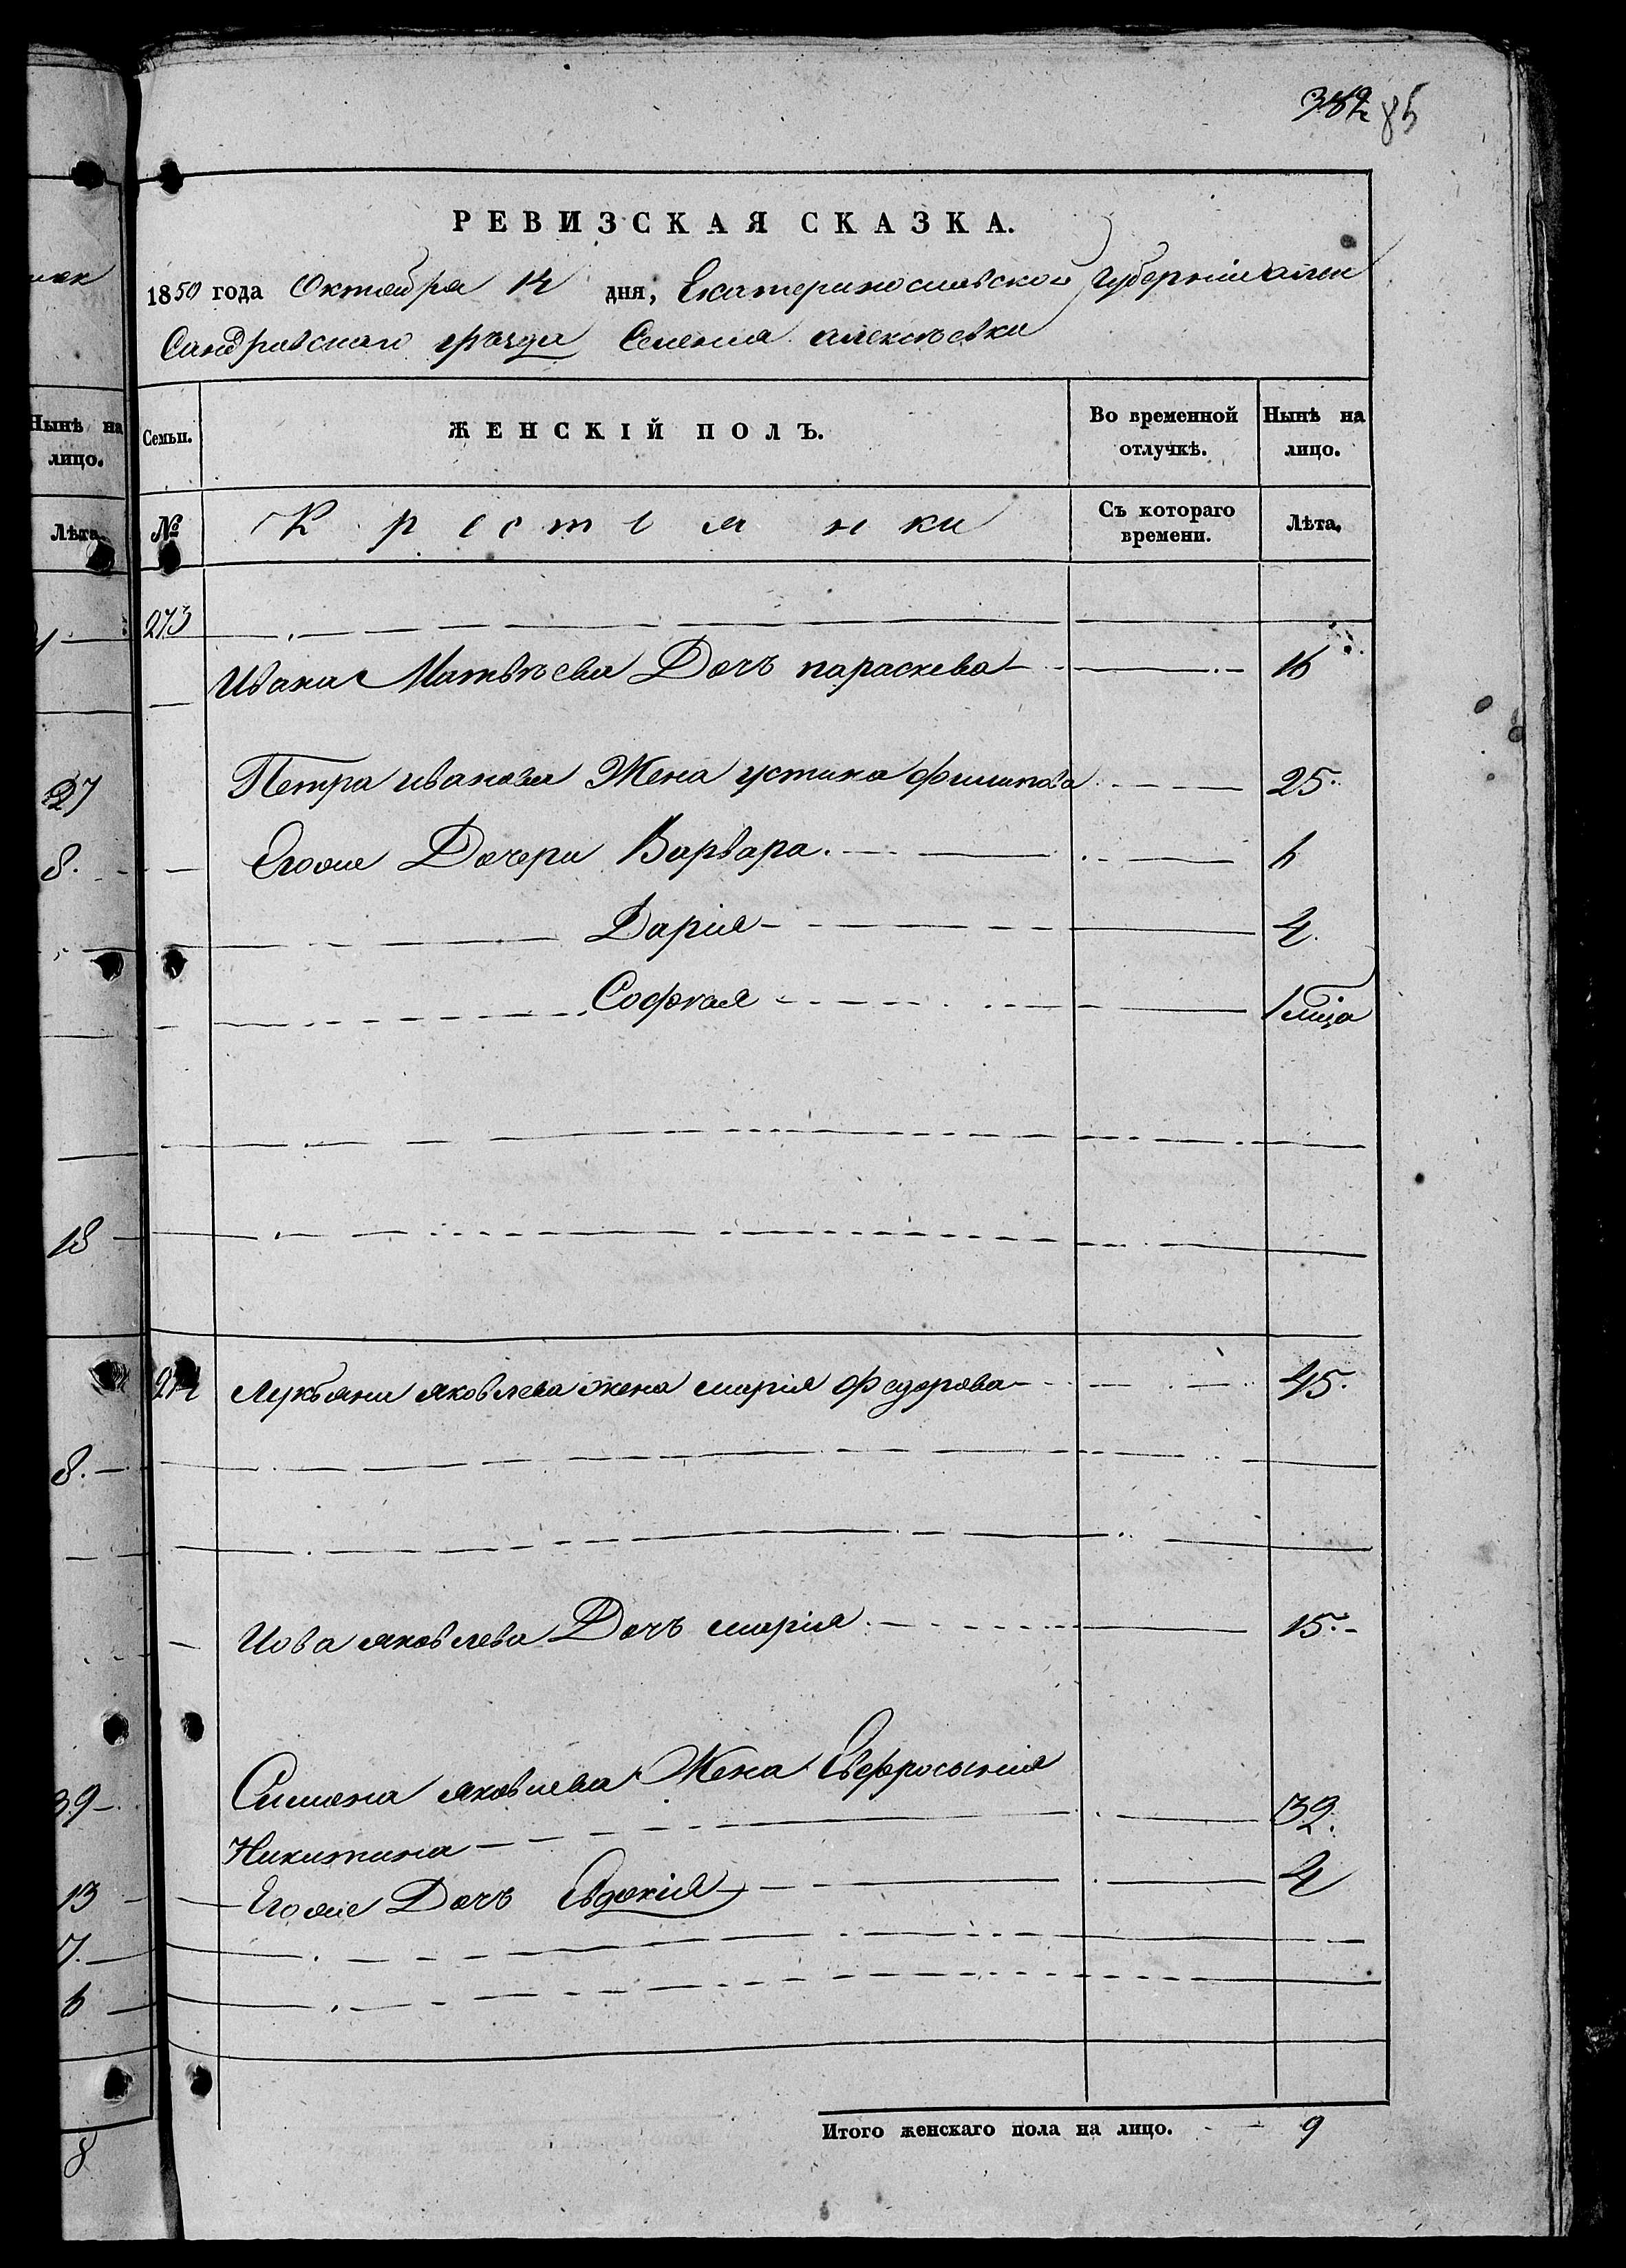 382 85
РЕВИЗСКАЯ СКАЗКА.
1850 года Октября 14 дня, Екатеринославской Губерніи алек
Сандрывскаго уѣзда Селенія алексѣевки
Нынѣ на лицо.
Семьи. ЖЕНСКІЙ ПОЛЪ. Во временной отлучкѣ. Нынѣ на лицо.
Лѣта. № Крестьянки Съ котораго времени. Лѣта.
273
Ивана Матвѣева Дочъ параскева 16
27 Петра иванова Жена устина филипова 25.
8. Егоже Дочери Варвара. 6
Дарія 4.
Софкая 1
18
274 Лукьяна яковлева жена марія федорова 45.
8.
Иова яковлева Дочъ марія 15.
39 Симона яковлева Жена Евфросинія 32.
Никитина
13 Егоже Дочъ Евдокія 4
7.
6
Итого женскаго пола на лицо. 9
8